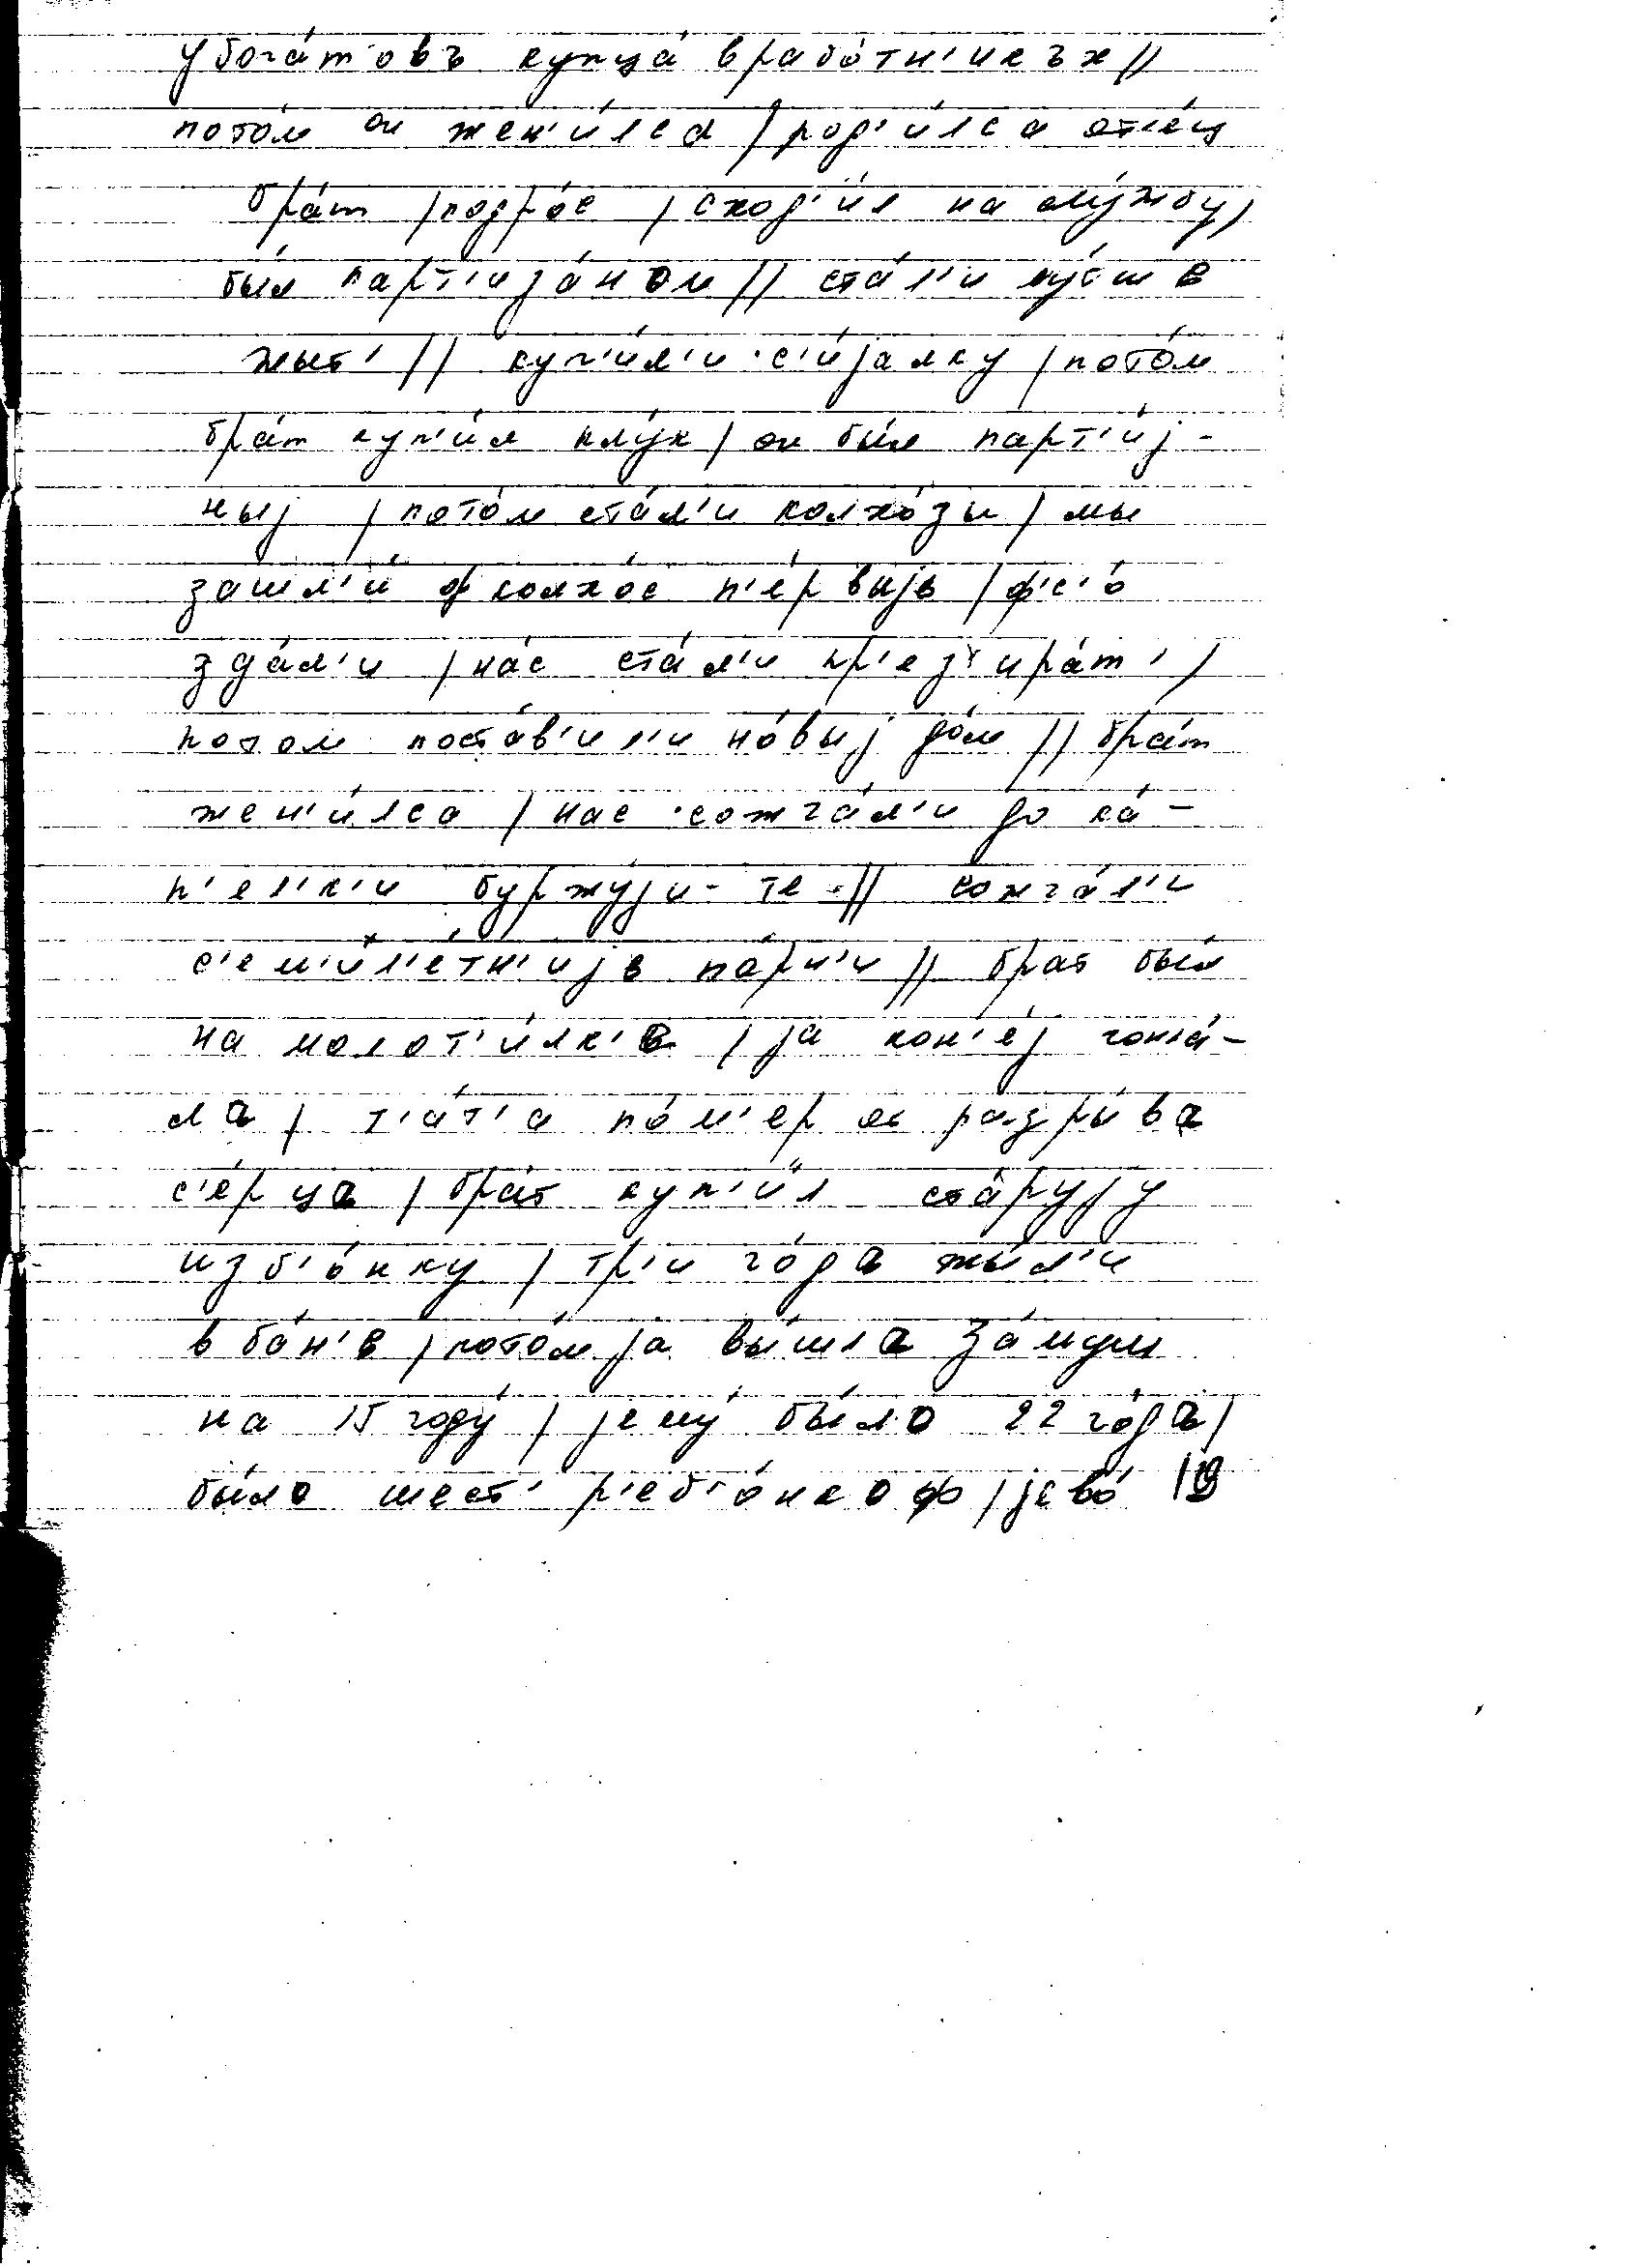 убога́товъ купца́ в рабо́тн'икъх //
пото́м он жен'и́лса / род'и́лса от'е́ц
бра́т / подро́с / сход'и́л на слу́жбу /
бы́л парт'иза́ном // ста́л'и лу́тшв
жыт' // куп'и́л'и с'и́јалку / пото́м
бра́т куп'и́л плу́к / он бы́л парт'и́ј-
ныј / пото́м ста́л'и колхо́зы / мы
зашл'и́ ф колхо́с п'е́рвыјь / фс'о́
зда́л'и / на́с ста́л'и пр'езʼира́т' /
потом поста́в'ил'и но́выј до́м // бра́т
жен'и́лса / нас сожга́л'и до ка́-
п'ел'к'и буржу́ји-те // сожга́л'и
с'ем'ил'е́тн'ијв па́рн'и // брат бы́л
на молот'и́лк'в / ја кон'е́ј гон'а́-
ла / т'а́т'а по́м'ер от разры́ва
с'е́рца / бра́т куп'и́л ста́рују
изб'о́нку / тр'и го́да жы́л'и
в ба́н'в / пото́м ја вы́шла за́муш
на 15 году́ / јему́ бы́ло 22 го́да /
бы́ло шест' р'еб'о́нкоф / јево́ /в